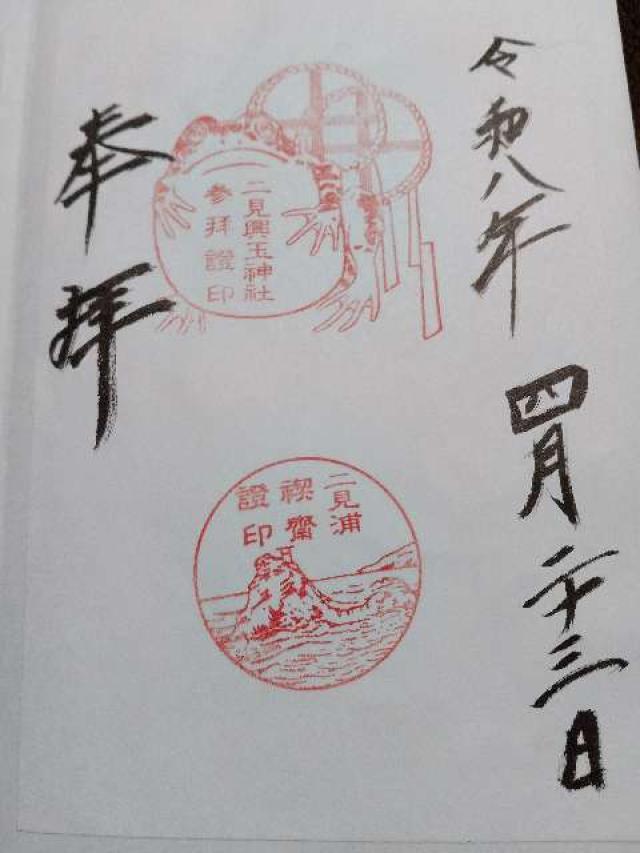 令和八年四月二十三日
二見興玉神社
参拝證印
二見浦
禊齋
證印
奉拝